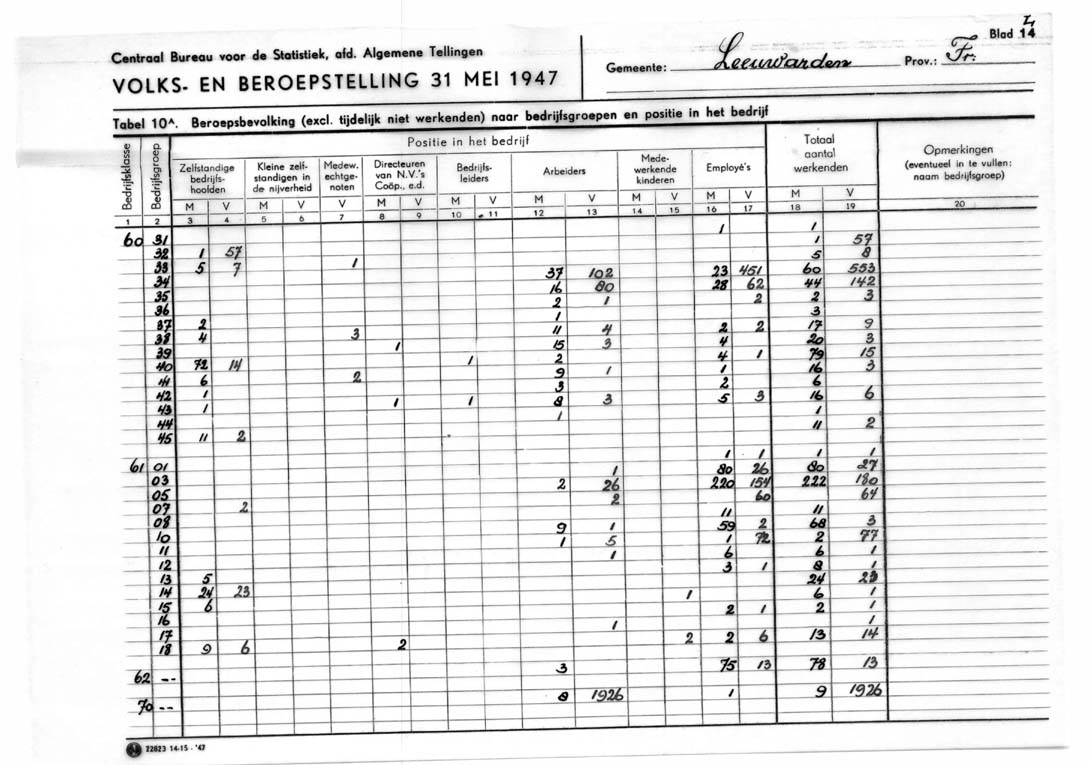 Centraal Bureau voor de Statistiek, afd. Algemene Tellingen
VOLKS- EN BEROEPSTELLING 31 MEI 1947
Gemeente: Leeuwarden Prov.: Fr.
Blad 14
Tabel 10A. Beroepsbevolking (excl. tijdelijk niet werkenden) naar bedrijfsgroepen en positie in het bedrijf
Bedrijfsklasse
Bedrijfsgroep
Positie in het bedrijf
Zelfstandige bedrijfs-hoofden
Kleine zelf-standigen in de nijverheid
Medew. echtge-noten
Directeuren van N.V.'s Coöp., e.d.
Bedrijfs-leiders
Arbeiders
Mede-werkende kinderen
Employé's
Totaal aantal werkenden
Opmerkingen (eventueel in te vullen: naam bedrijfsgroep)
M V M V V M V M V M V M V M V M V
1 2 3 4 5 6 7 8 9 10 11 12 13 14 15 16 17 18 19 20
60 31 1 1
32 1 57 1 57
33 5 7 1 5 8
34 37 102 23 451 60 553
35 16 80 28 62 44 142
36 2 1 2 2 3
37 2 1 3
38 4 3 11 4 2 2 17 9
39 1 15 3 4 20 3
40 72 14 1 2 4 1 79 15
41 6 2 9 1 1 16 3
42 1 3 2 6
43 1 1 1 8 3 5 3 16 6
44 1 1
45 11 2 11 2
61 01 1 1 1 1
03 1 80 26 80 27
05 2 26 220 154 222 180
07 2 2 60 64
08 11 11
10 9 1 59 2 68 3
11 1 5 1 72 2 77
12 1 6 6 1
13 5 3 1 8 1
14 24 23 24 23
15 6 1 6 1
16 2 1 2 1
17 1 1
18 9 6 2 2 2 6 13 14
62 -- 3 75 13 78 13
70 -- 8 1926 1 9 1926
22823 14-15 - '47